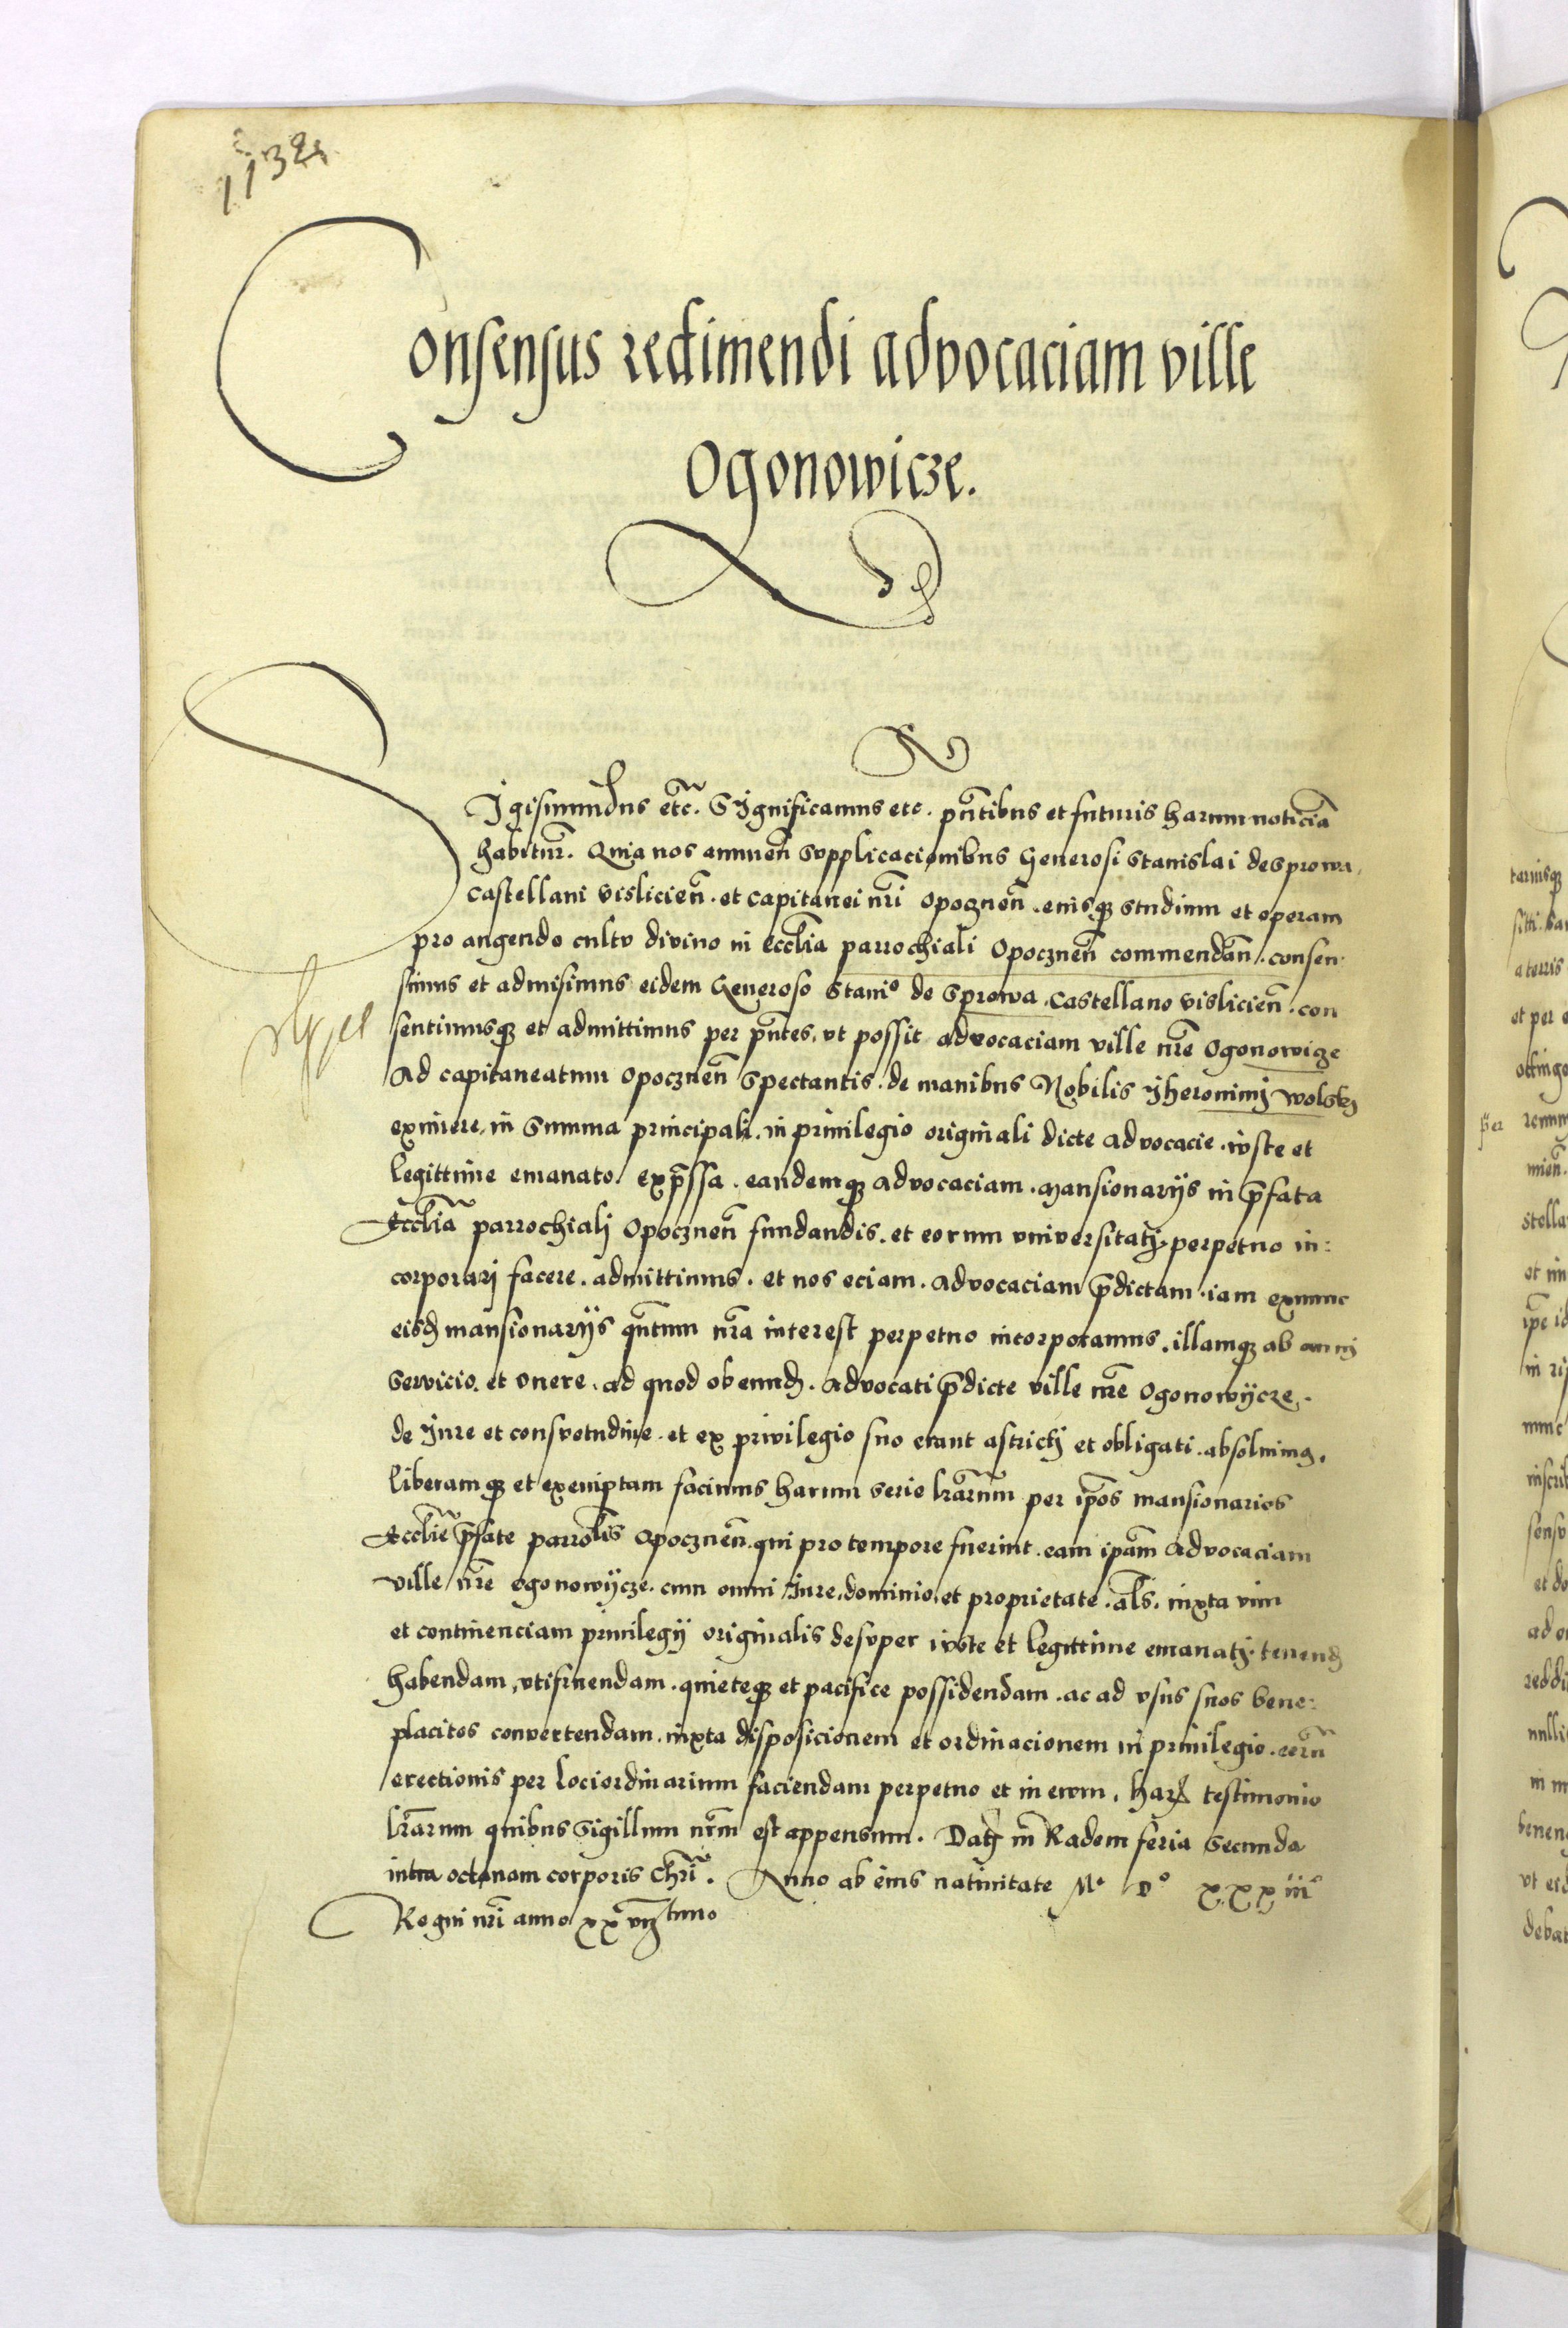 1132
Consensus redimendi advocaciam ville
Ogonowicze.
Sigismundus etc̃. Significamus etc. pñtibus et futuris harum noticiã
habitur̃. Quia nos annuen̄ supplicacionibus Generosi Stanislai de Sprowa,
castellani vislicien̄. et capitanei nr̃i opocznen̄. eiusq; studium et operam
pro augendo cultu divino in eccl̃ia parrochiali Opocznen̄ commendan̄. consen
simus et admisimus eidem Generoso Stanio de Sprowa, castellano vislicien̄. con
sentimusq; et admittimus per pñtes, ut possit advocaciam ville nr̃e Ogonowicze
Ad capitaneatum opocznen̄ spectantis. de manibus Nobilis Jheronimi Wolskj
eximere, in summa principali. in privilegio originali dicte advocacie. iuste et
legittime emanato. exp̃ssa. eandemq; advocaciam. Mansionarijs in p̃fata
Eccl̃ia parrochialj Opocznen̄ fundandis. et eorum universitatj. perpetuo in:
corporarj facere. admittimus. et nos eciam. advocaciam p̃dictam. iam exnunc
eisd̃ mansionarijs qñtum nr̃a interest perpetuo incorporamus. illamq; ab omnj
servicio. et onere. ad quod obeund̃. advocati p̃dicte ville nr̃e Ogonowÿcze.
de Jure et consvetudine. et ex privilegio suo erant astrictj et obligati. absolvimus.
liberamq; et exemptam facimus harum serie lr̃arum per ip̃os mansionarios
Eccl̃ie p̃fate parrol̃is Opocznen̄. qui pro tempore fuerint. eam ip̃am advocaciam
ville nr̃e ogonowÿcze. cum omni Jure, dominio, et proprietate. al̃s. iuxta vim
et continenciam privilegij originalis desuper iuste et legittime emanatj. tenend̃
habendam, utifruendam. quieteq; et pacifice possidendam. ac ad usus suos bene:
placitos convertendam. iuxta disposicionem et ordinacionem in privilegio. eorũ
erectionis per lociordinarium faciendam perpetuo et in evum. harꝝ testimonio
lr̃arum quibus sigillum nr̃m est appensum. Datũ in Radom feria secunda
intra octavam corporis Chr̃i. Anno ab eius nativitate Mo Do XXXiii
Regni nr̃i anno xxviitimo